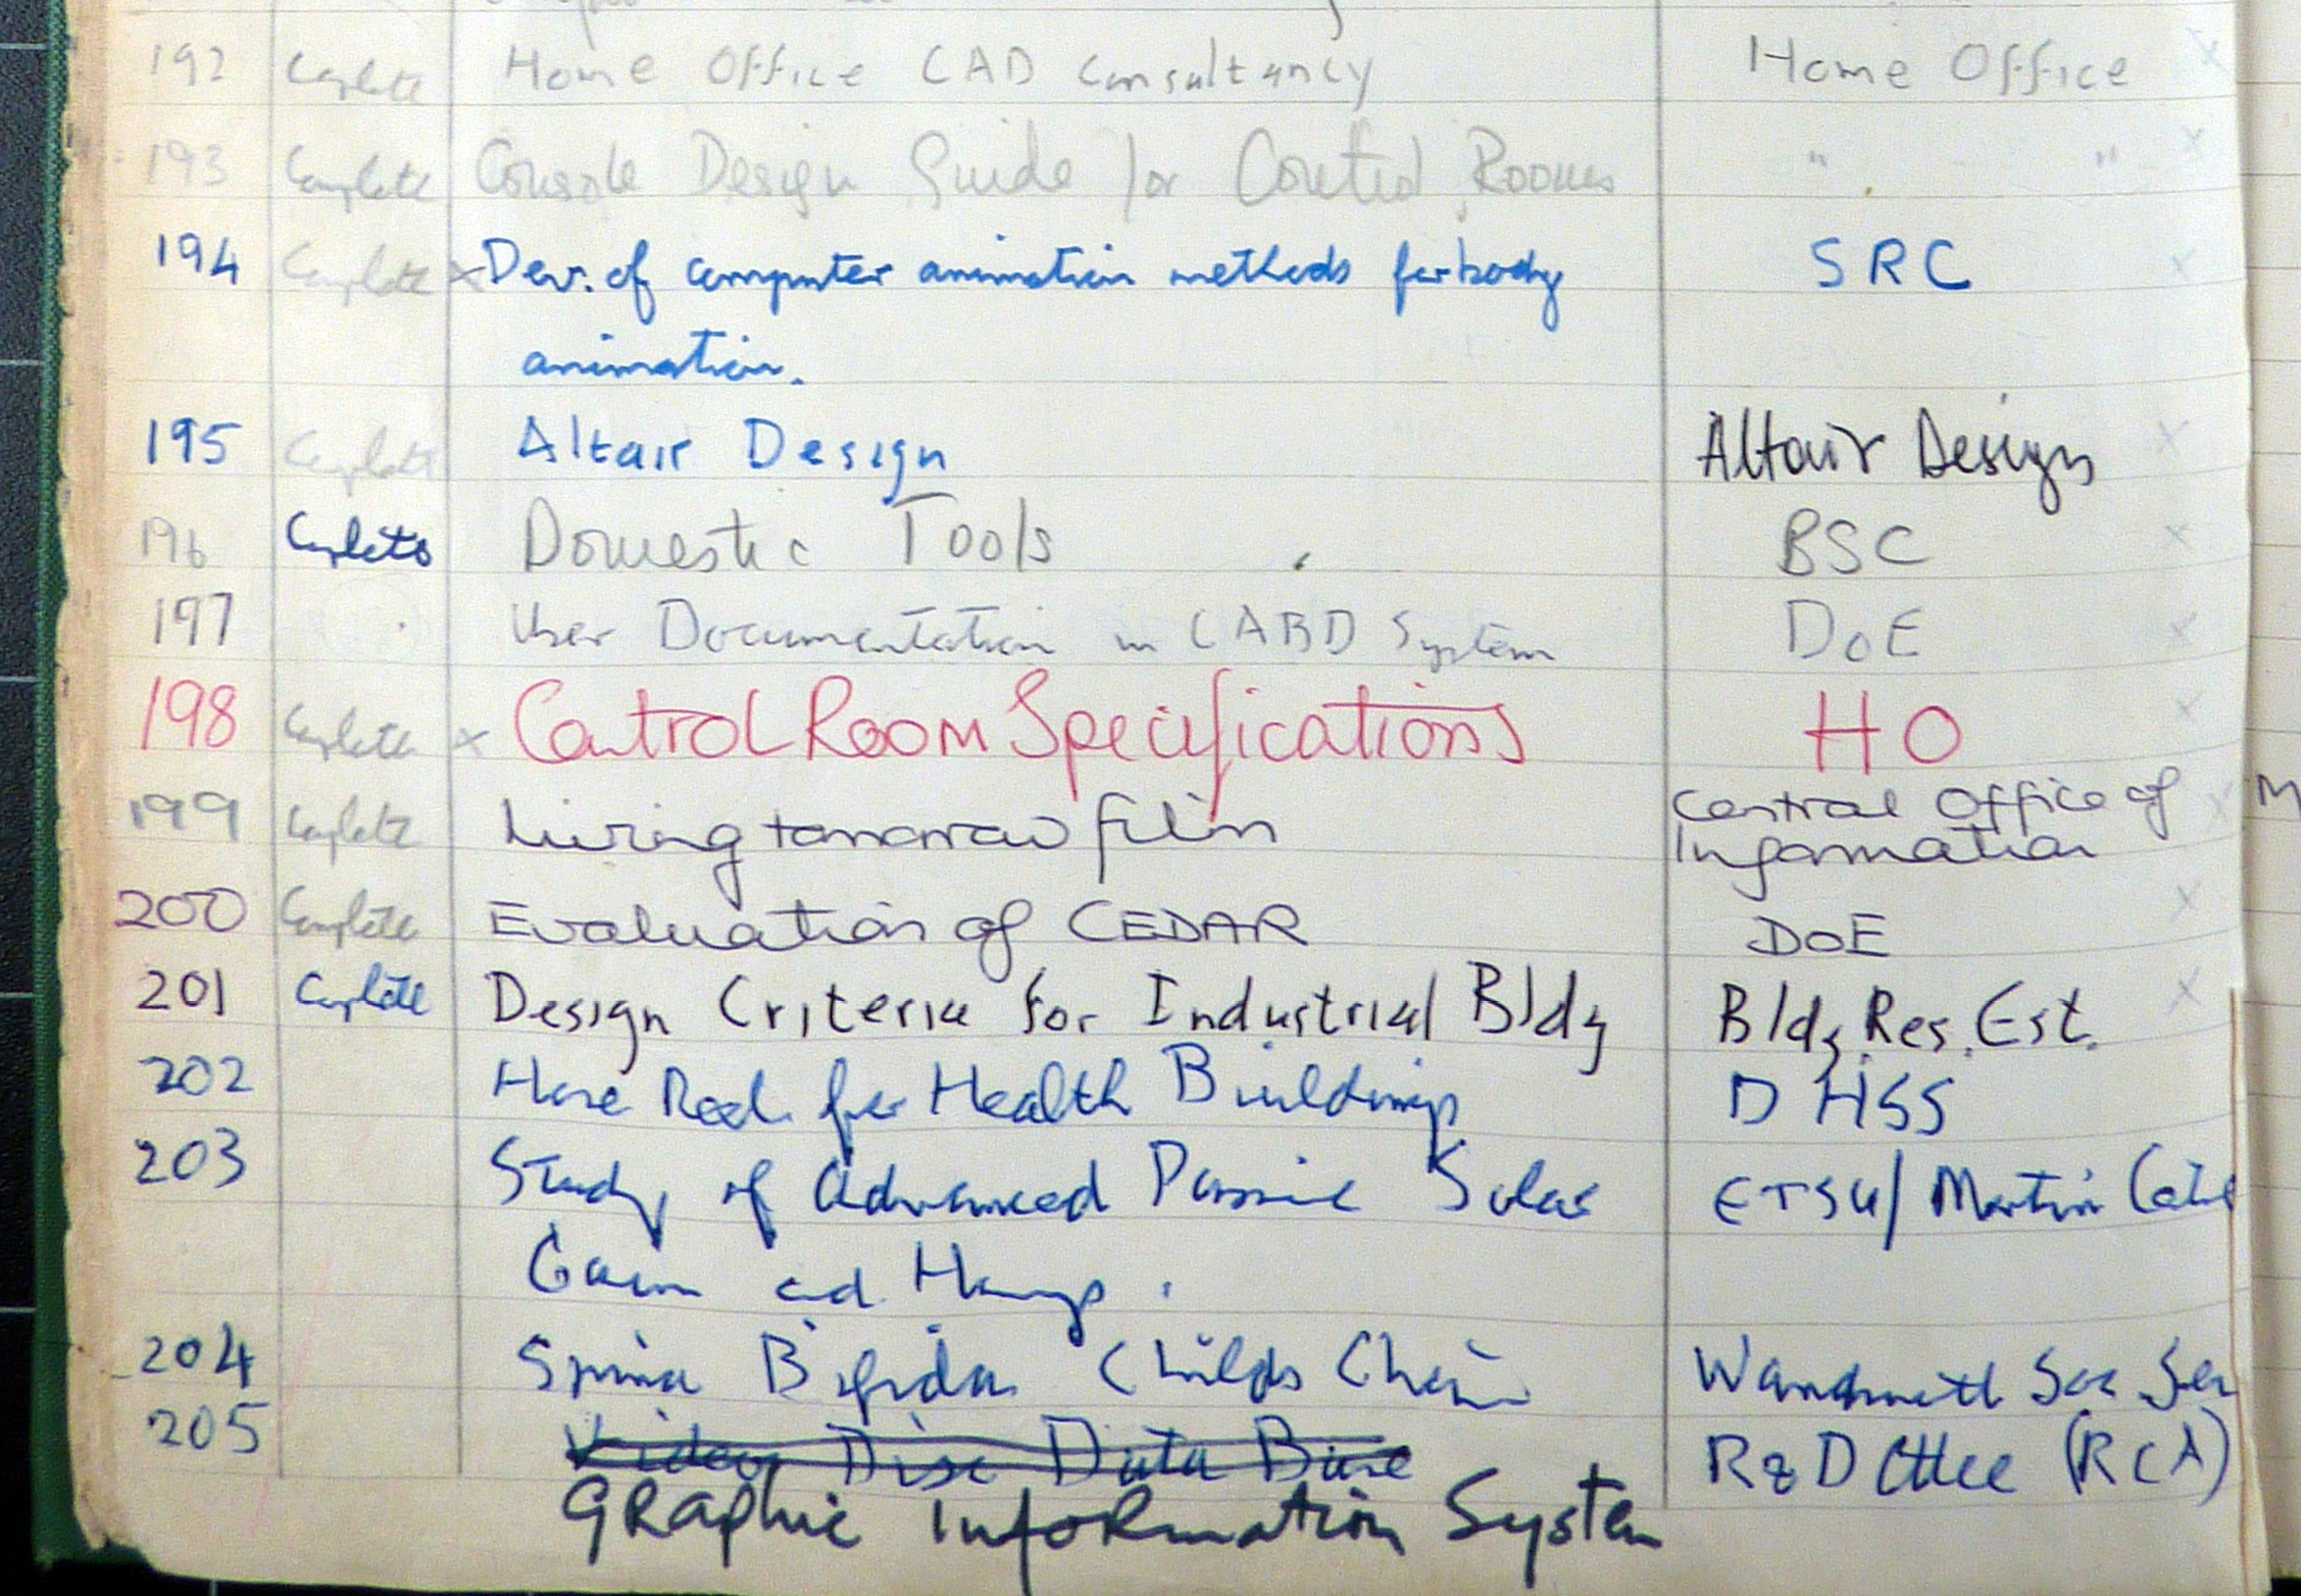 192 Complete Home Office CAD Consultancy Home Office
193 Complete Console Design Guide for Control Rooms " "
194 Complete x Dev. of computer animation methods for body SRC
animation.
195 Complete Altair Design Altair Design
196 Complete Domestic Tools BSC
197 User Documentation in CABD System DoE
198 Complete x Control Room Specifications HO
199 Complete Living tomorrow film Central Office of
Information
200 Complete Evaluation of CEDAR DOE
201 Complete Design Criteria for Industrial Bldg Bldg. Res. Est.
202 Hose Reel for Health Buildings DHSS
203 Study of Advanced Passive Solar ETSU/ Martin
Gain
204 Spina Bifida Childs Chair Soc Ser
205 Video Disc Data Base R & D Cttee (RCA)
Graphic Information System